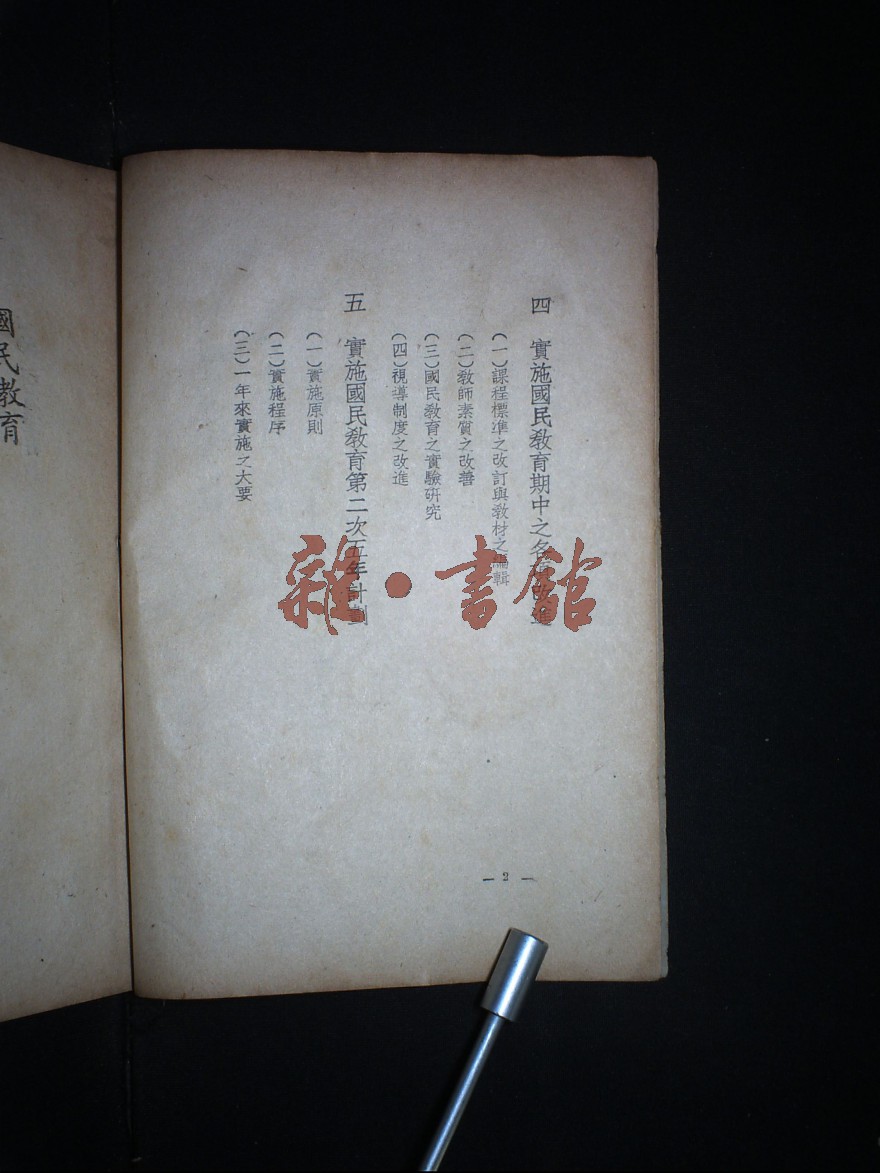 四　實施國民教育期中之各項改進
(一)課程標準之改訂與教材之編輯
(二)教師素質之改善
(三)國民教育之實驗研究
(四)視導制度之改進
五　實施國民教育第二次五年計劃
(一)實施原則
(二)實施程序
(三)一年來實施之大要
— 2 —
國民教育
雜·書館